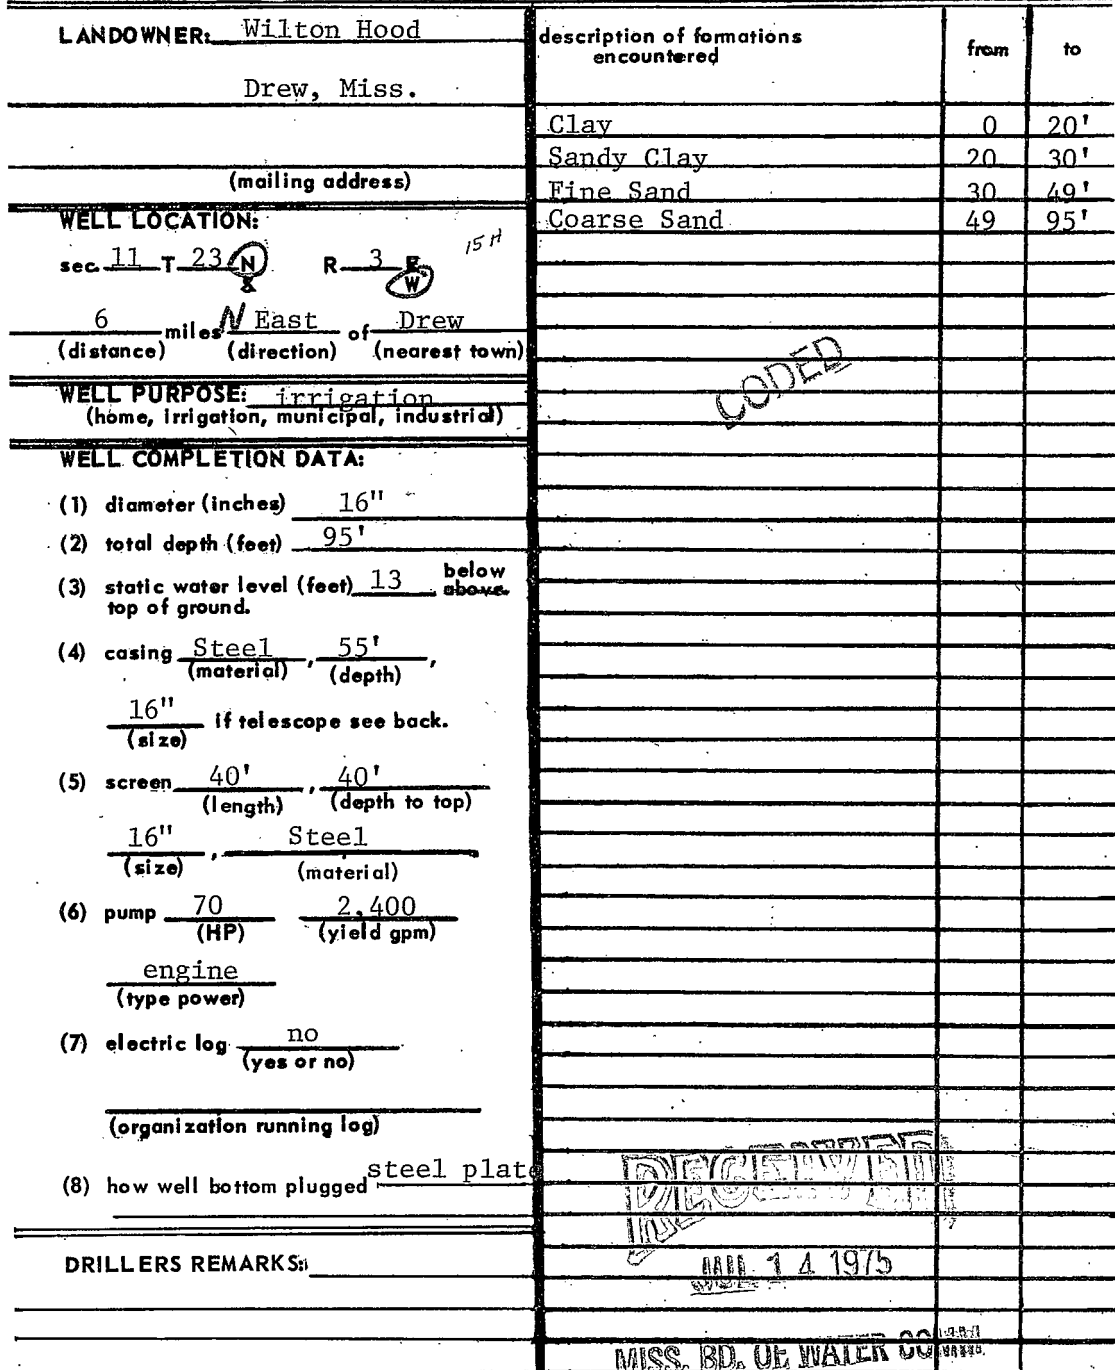 LANDOWNER: Wilton Hood
Drew, Miss.
(mailing address)
WELL LOCATION:
15 H
sec. 11 T 23 N R 3 E
S W
6 miles N East of Drew
(distance) (direction) (nearest town)
WELL PURPOSE: irrigation
(home, irrigation, municipal, industrial)
WELL COMPLETION DATA:
(1) diameter (inches) 16"
(2) total depth (feet) 95'
(3) static water level (feet) 13 below above
top of ground.
(4) casing Steel, 55',
(material) (depth)
16" if telescope see back.
(size)
(5) screen 40', 40'
(length) (depth to top)
16", Steel
(size) (material)
(6) pump 70 2,400
(HP) (yield gpm)
engine
(type power)
(7) electric log no
(yes or no)
(organization running log)
(8) how well bottom plugged steel plate
DRILLERS REMARKS:
description of formations from to
encountered
Clay 0 20'
Sandy Clay 20 30'
Fine Sand 30 49'
Coarse Sand 49 95'
CODED
RECEIVED
JUL 14 1975
MISS. BD. OF WATER COMM.